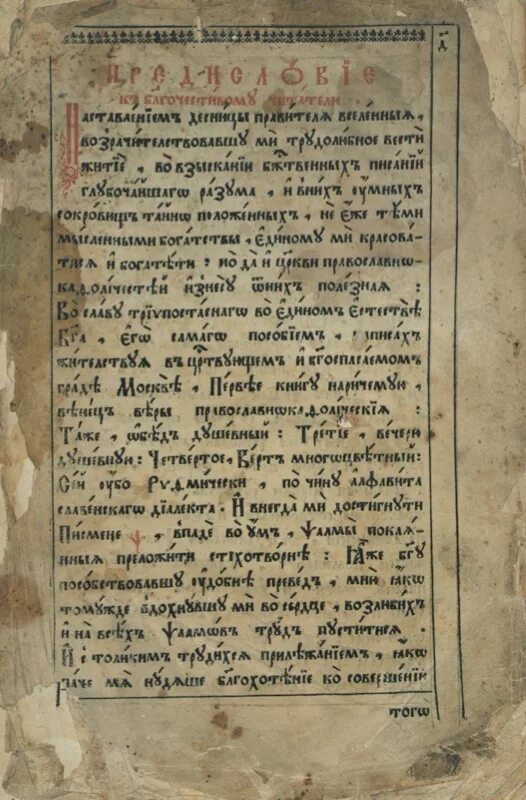 д҃
ПРЕДИСЛО́ВЇЕ
къ бл҃гочести́вому чита́телю
Наставле́нїемъ десни́цы прави́теля вселе́нныя,
возрачи́телствовавшу мѝ трудолю́бное вестѝ
житїѐ, во взыска́нїи бж҃твенныхъ писа́нїй
глубоча́йшагѡ ра́зума, и҆ в̾ни́хъ ᲂу҆́мныхъ
сокро́вищъ та́йнѡ положе́нныхъ, не є҆́же тѣ́ми
мы́сленными бога́тствы, є҆ди́ному мѝ красова́
тися и҆ богатѣ́ти: но да̀ и҆ цр҃кви правосла́внѡ
каѳоли́честѣй и҆знесу̀ ѿни́хъ поле́зная:
Во сла́ву трїѵпоста́снагѡ во є҆ди́номъ є҆стествѣ̀
Бг҃а, є҆гѡ̀ самагѡ посо́бїемъ, написа́хъ
жи́телствуя въ црⷭ҇твующемъ и҆ бг҃оспаса́емомъ
гра́дѣ Москвѣ̀, Пе́рвѣе кни́гу нарица́емую,
вѣне́цъ вѣ́ры правосла́внокаѳоли́ческїя:
Та́же, ѡ҆бѣ́дъ душе́вный: Тре́тїе, вече́рю
душе́вную: Четве́ртое, Ве́ртъ многоцвѣ́тный:
Се́й ᲂу҆́бо Ри́ѳмически, по чи́ну а҆лфави́та
славе́нскагѡ дїале́кта. И҆ внегда̀ мѝ дости́гнути
Пи́смене ѱ, впадѐ во ᲂу҆́мъ, Ѱалмы̀ покая́н
ныя преложи́ти стїхотво́рнѣ: Ꙗ҆̀же бг҃у
посо́бствовавшу ᲂу҆до́бнѣ преведо́хъ, мнѝ ꙗ҆́кѡ
тому́жде вдохну́вшу мѝ во се́рдце, возлюби́хъ
и҆ на всѣ́хъ Ѱалмѡ́въ тру́дъ пусти́тися.
И҆ с толи́кимъ труди́хся прилѣжа́нїемъ, ꙗ҆́кѡ
за́не мѧ̀ нудя́ше бл҃гохотѣ́нїе ко соверше́нїю
тогѡ